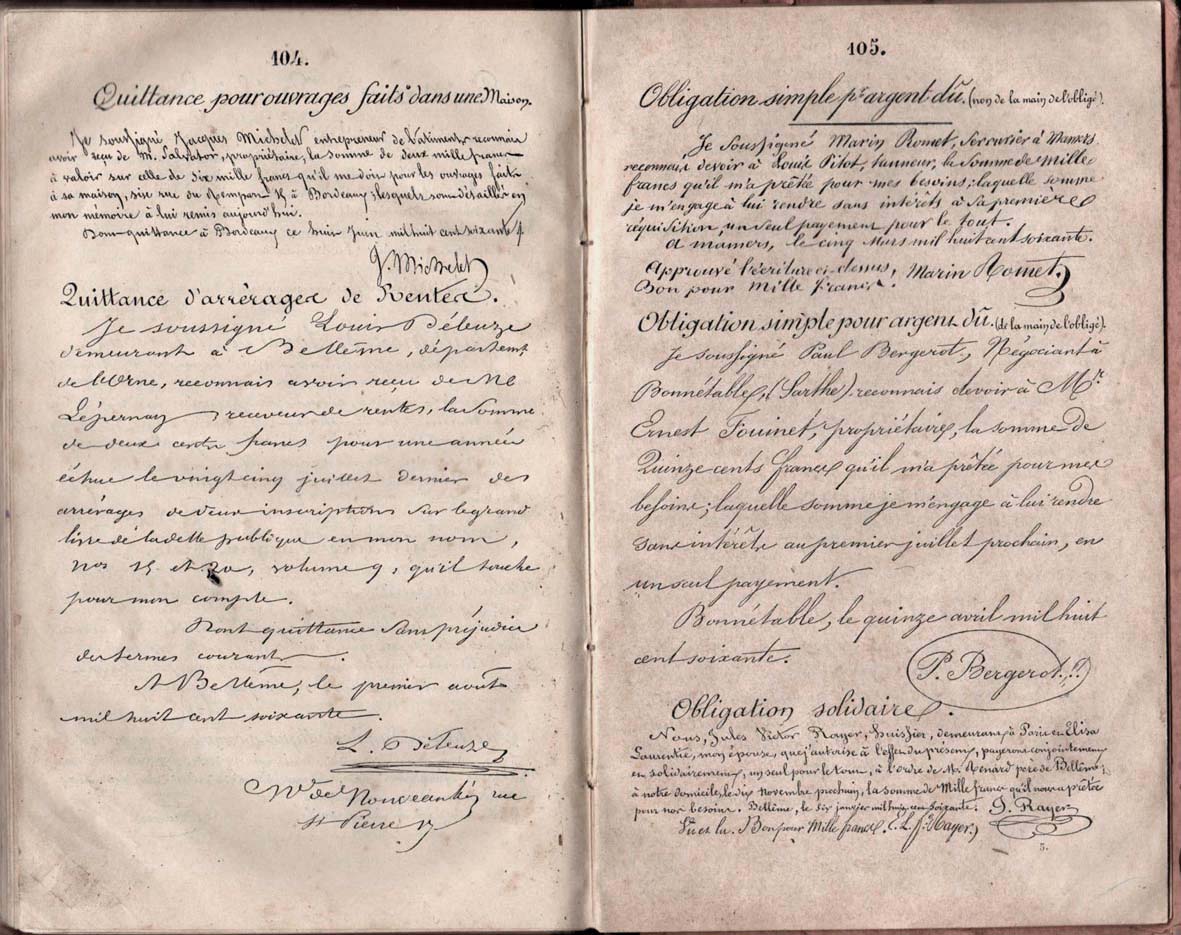 104.
Quittance pour ouvrages faits dans une Maison.
Je soussigné Jacques Michelet entrepreneur de bâtiments reconnais
avoir reçu de M. Salvator, propriétaire, la somme de deux mille francs
à valoir sur celle de dix mille francs qu'il me doit pour les ouvrages faits
à sa maison, sise rue du Rempart à Bordeaux; lesquels sont détaillés en
mon mémoire à lui remis aujourd'hui.
Dont quittance à Bordeaux ce huit Juin mil huit cent soixante.
J. Michelet
Quittance d'arrérages de Rentes.
Je soussigné Louis Déleuze
demeurant à Bellême, départemt
de l'Orne, reconnais avoir reçu de Me
Lépernay receveur de rentes, la somme
de deux cents francs pour une année
échue le vingt cinq juillet dernier des
arrérages de deux inscriptions sur le grand
livre de la dette publique en mon nom,
Nos 15 et 20, volume 9, qu'il touche
pour mon compte.
Dont quittance sans préjudice
des termes courants.
A Bellême, le premier août
mil huit cent soixante.
L. Déleuze
Md de Nouveautés rue
St Pierre
105.
Obligation simple pr argent dû. (non de la main de l'obligé).
Je soussigné Marin Romet, Serrurier à Mamers
reconnais devoir à Louis Pitot, tanneur, la Somme de Mille
francs qu'il m'a prêtée pour mes besoins; laquelle somme
je m'engage à lui rendre sans intérêts à sa première
réquisition, un seul payement pour le tout.
A mamers, le cinq Mars mil huit cent soixante.
Approuvé l'écriture ci-dessus, Marin Romet.
Bon pour Mille francs.
Obligation simple pour argent dû. (de la main de l'obligé).
Je soussigné Paul Bergerot, Négociant à
Bonnétable, (Sarthe) reconnais devoir à Mr
Ernest Fouinet, propriétaire, la somme de
Quinze cents francs qu'il m'a prêtée pour mes
besoins; laquelle somme je m'engage à lui rendre
sans intérêts au premier juillet prochain, en
un seul payement.
Bonnétable, le quinze avril mil huit
cent soixante.
P. Bergerot.
Obligation solidaire.
Nous, Jules Victor Rayer, huissier, demeurant à Paris et Elisa
Laurentie, mon épouse, que j'autorise à l'effet du présent, payerons conjointement
et solidairement, un seul pour le tout, à l'ordre de M. Renard père de Bellême,
à notre domicile, le dix Novembre prochain, la somme de Mille francs qu'il nous a prêtée
pour nos besoins. Bellême, le six janvier mil huit cent soixante. J. Rayer
Vu et lu. Bon pour Mille francs. E. L. fe Rayer.
5.